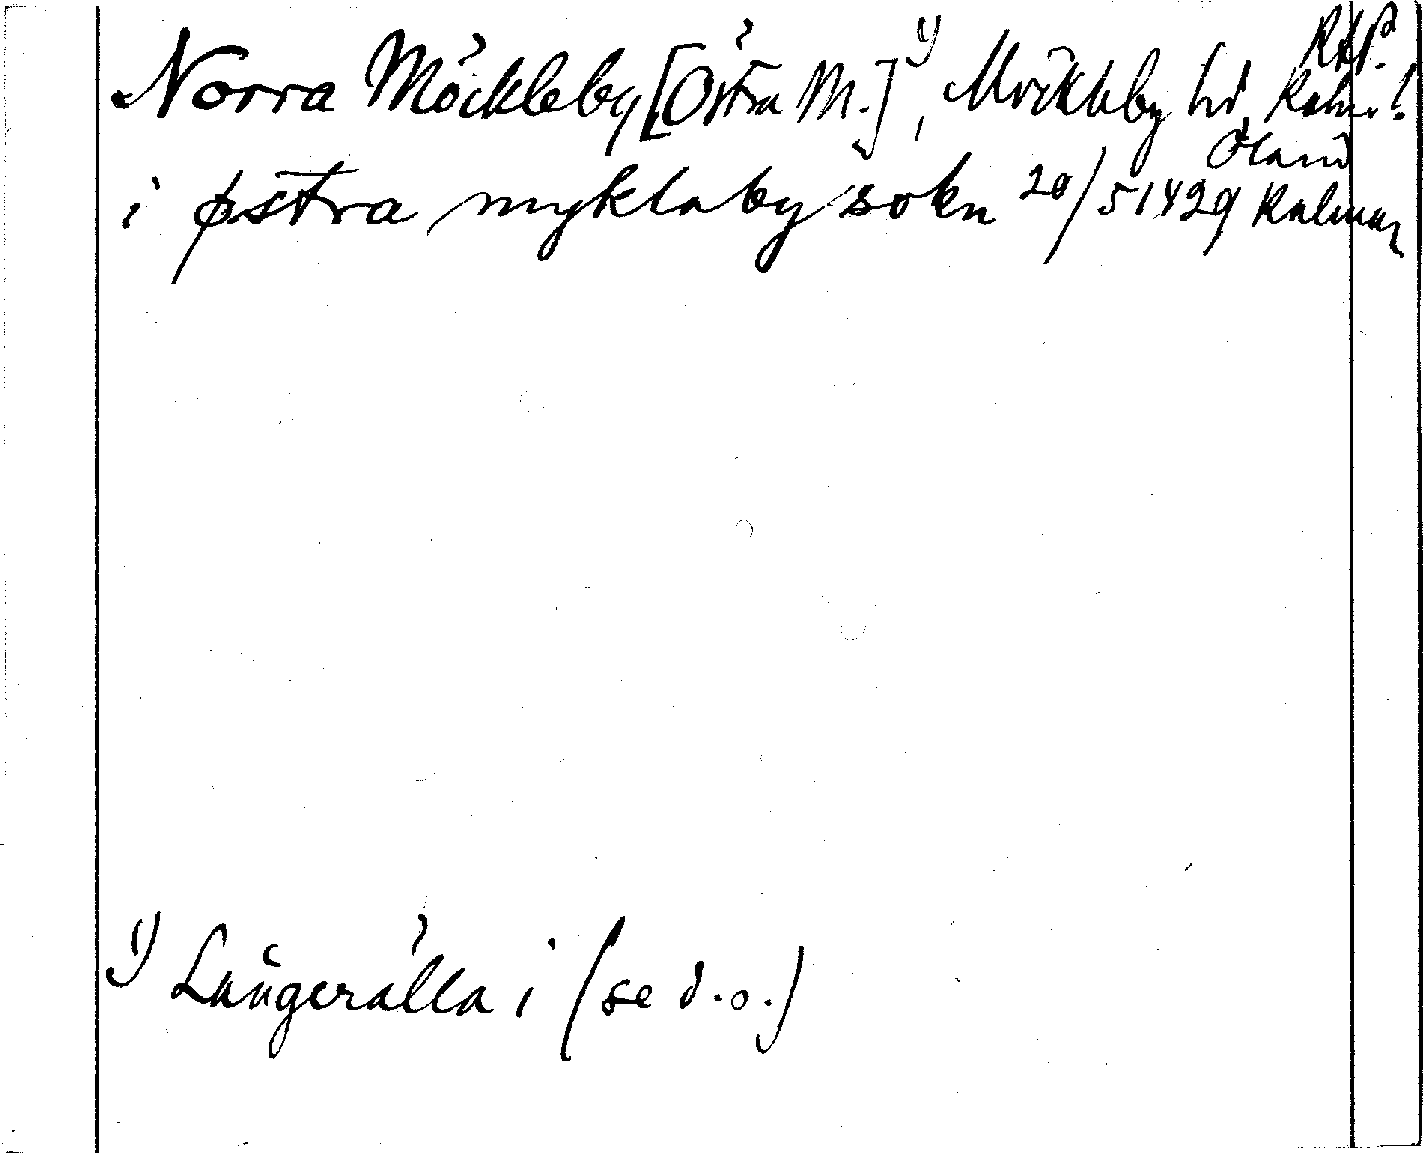 RAP.
Norra Möckleby [Östra M.] 1), Möckleby hd, Kalm. l.
Öland
i østra myklaby sokn 20/5 1429 Kalmar
1) Långerälla i (se d.o.)